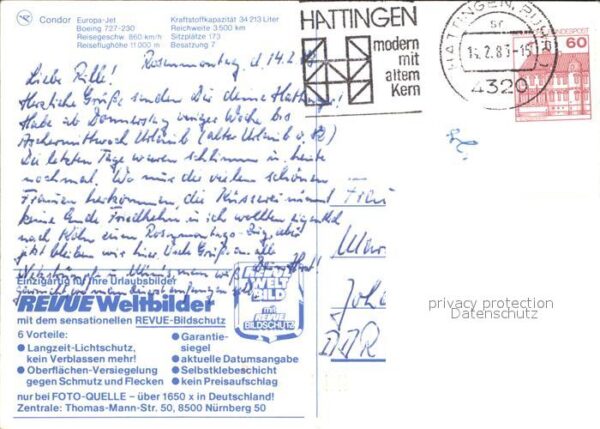 Condor
Europa-Jet
Boeing 727-230
Reisegeschw. 860 km/h
Reiseflughöhe 11.000 m
Kraftstoffkapazität 34 213 Liter
Reichweite 3500 km
Sitzplätze 173
Besatzung 7
HATTINGEN
modern
mit
altem
Kern
HATTINGEN, RUHR
4320
60
Rosenmontag, d. 14.2.
Liebe
Herzliche Grüße senden Dir deine
Habe ab Donnerstag voriger Woche bis
Aschermittwoch Urlaub (alter Urlaub v. 82)
Die letzten Tage waren schlimm u. heute
nochmal. Wo nur die vielen schönen
Frauen herkommen, die Küsserei nimmt
keine Ende. Friedhelm u. ich wollten eigentlich
nach Köln einen Rosenmontags-Zug, aber
jetzt bleiben wir hier. Viele Grüße an alle
Frau
DDR
privacy protection
Datenschutz
Einzigartig für Ihre Urlaubsbilder
REVUE Weltbilder
mit dem sensationellen REVUE-Bildschutz
REVUE
WELT
BILD
mit
REVUE
BILDSCHUTZ
6 Vorteile:
● Langzeit-Lichtschutz,
kein Verblassen mehr!
● Oberflächen-Versiegelung
gegen Schmutz und Flecken
● Garantie-
siegel
● aktuelle Datumsangabe
● Selbstklebeschicht
● kein Preisaufschlag
nur bei FOTO-QUELLE – über 1650 x in Deutschland!
Zentrale: Thomas-Mann-Str. 50, 8500 Nürnberg 50